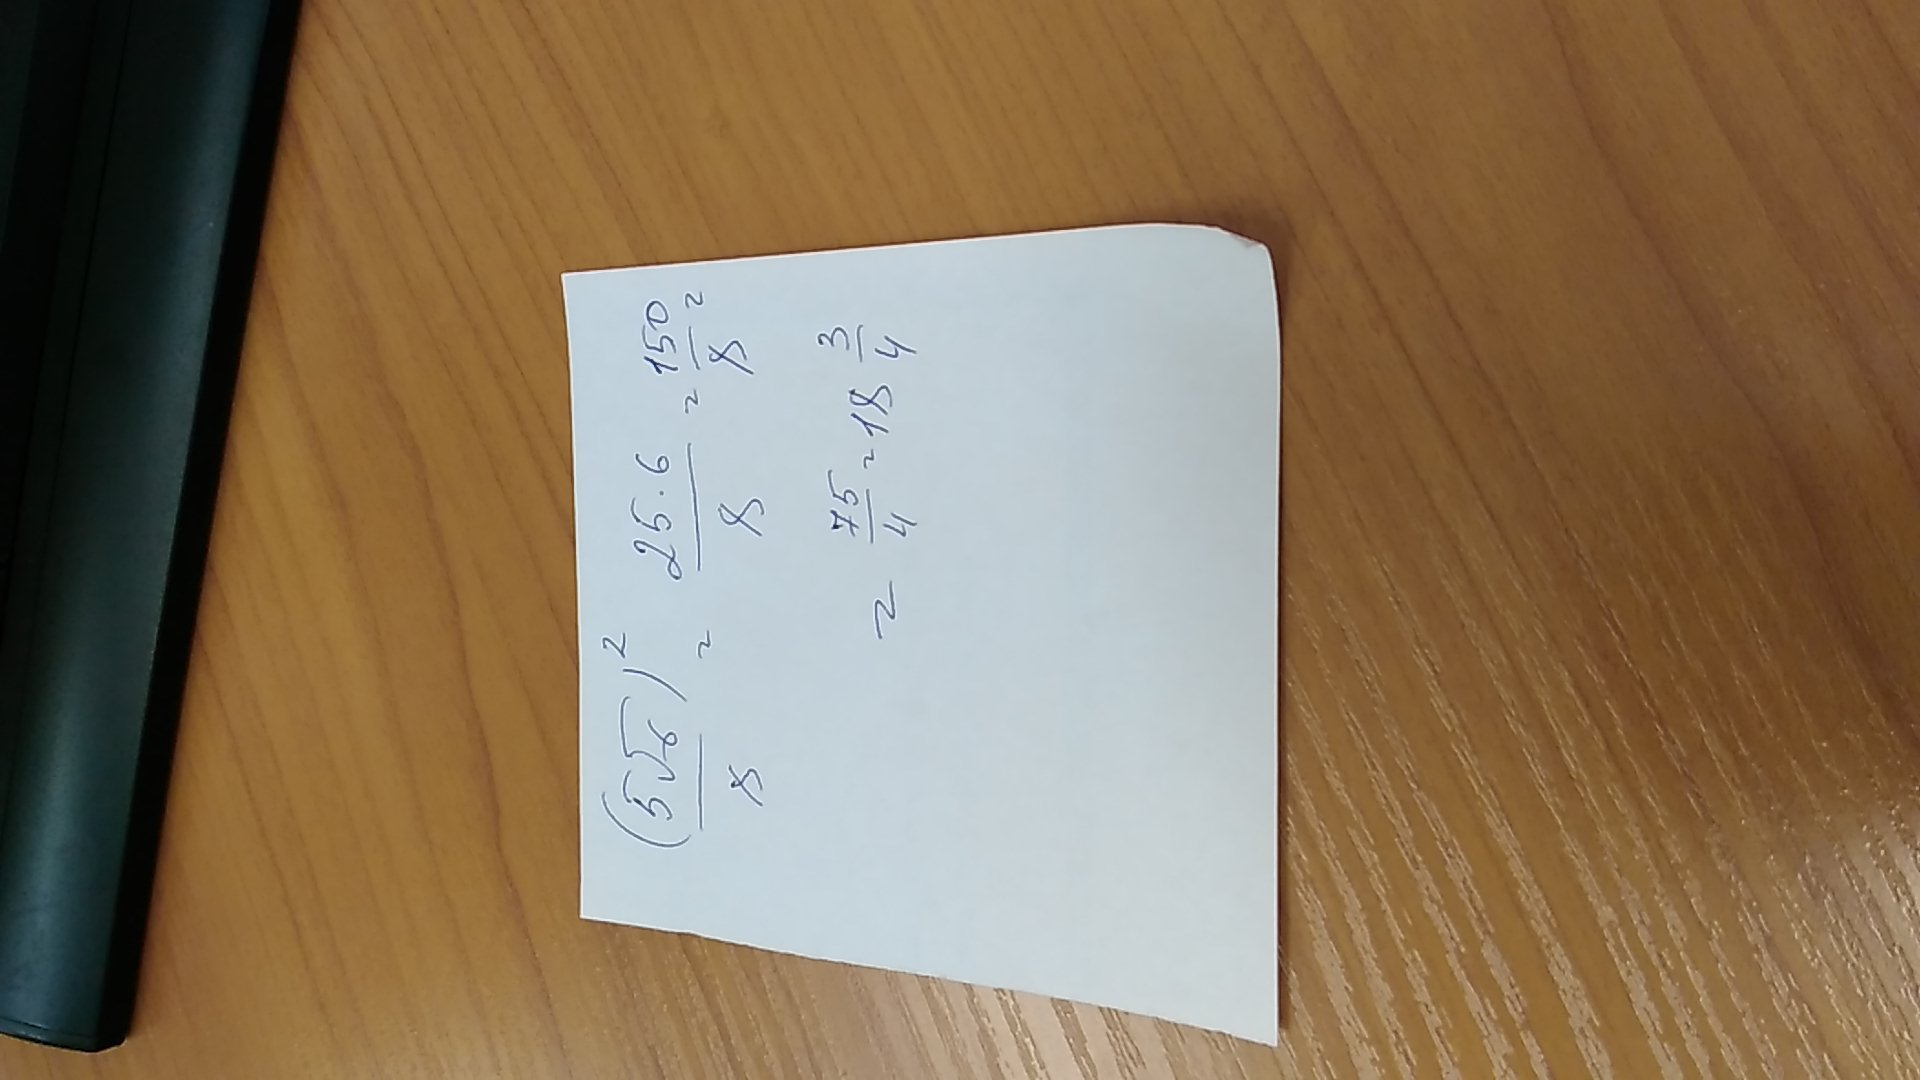 (5√6)² / 8 = 25·6 / 8 = 150 / 8 =
= 75 / 4 = 18 3/4